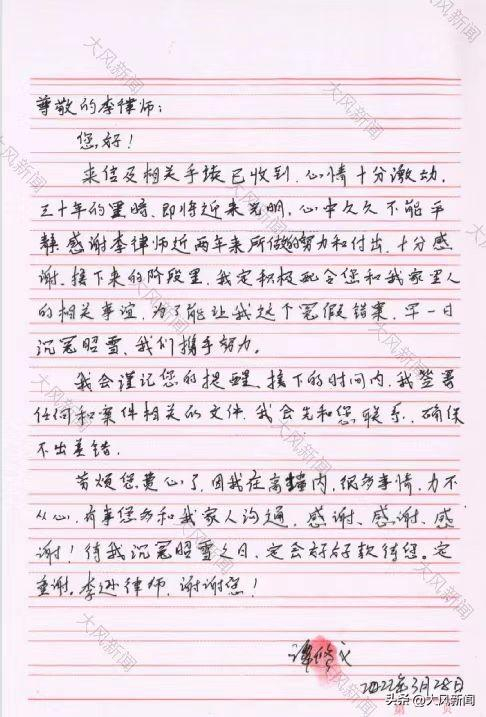 尊敬的李律师：
您好！
来信及相关手续已收到，心情十分激动，
三十年的黑暗，即将迎来光明，心中久久不能平
静，感谢李律师近两年来所做的努力和付出，十分感
谢，接下来的阶段里，我定积极配合您和我家里人
的相关事宜，为了能让我这个冤假错案，早一日
沉冤昭雪，我们携手努力。
我会谨记您的提醒，接下的时间内，我签署
任何和案件相关的文件，我会先和您联系，确保
不出差错。
劳烦您费心了，因我在高墙内，很多事情，力不
从心，有事您多和我家人沟通，感谢、感谢、感
谢！待我沉冤昭雪之日，定会好好款待您。定
重谢。李逊律师，谢谢您！
谭修义
2022年3月28日
第 页
头条 @大风新闻
大风新闻